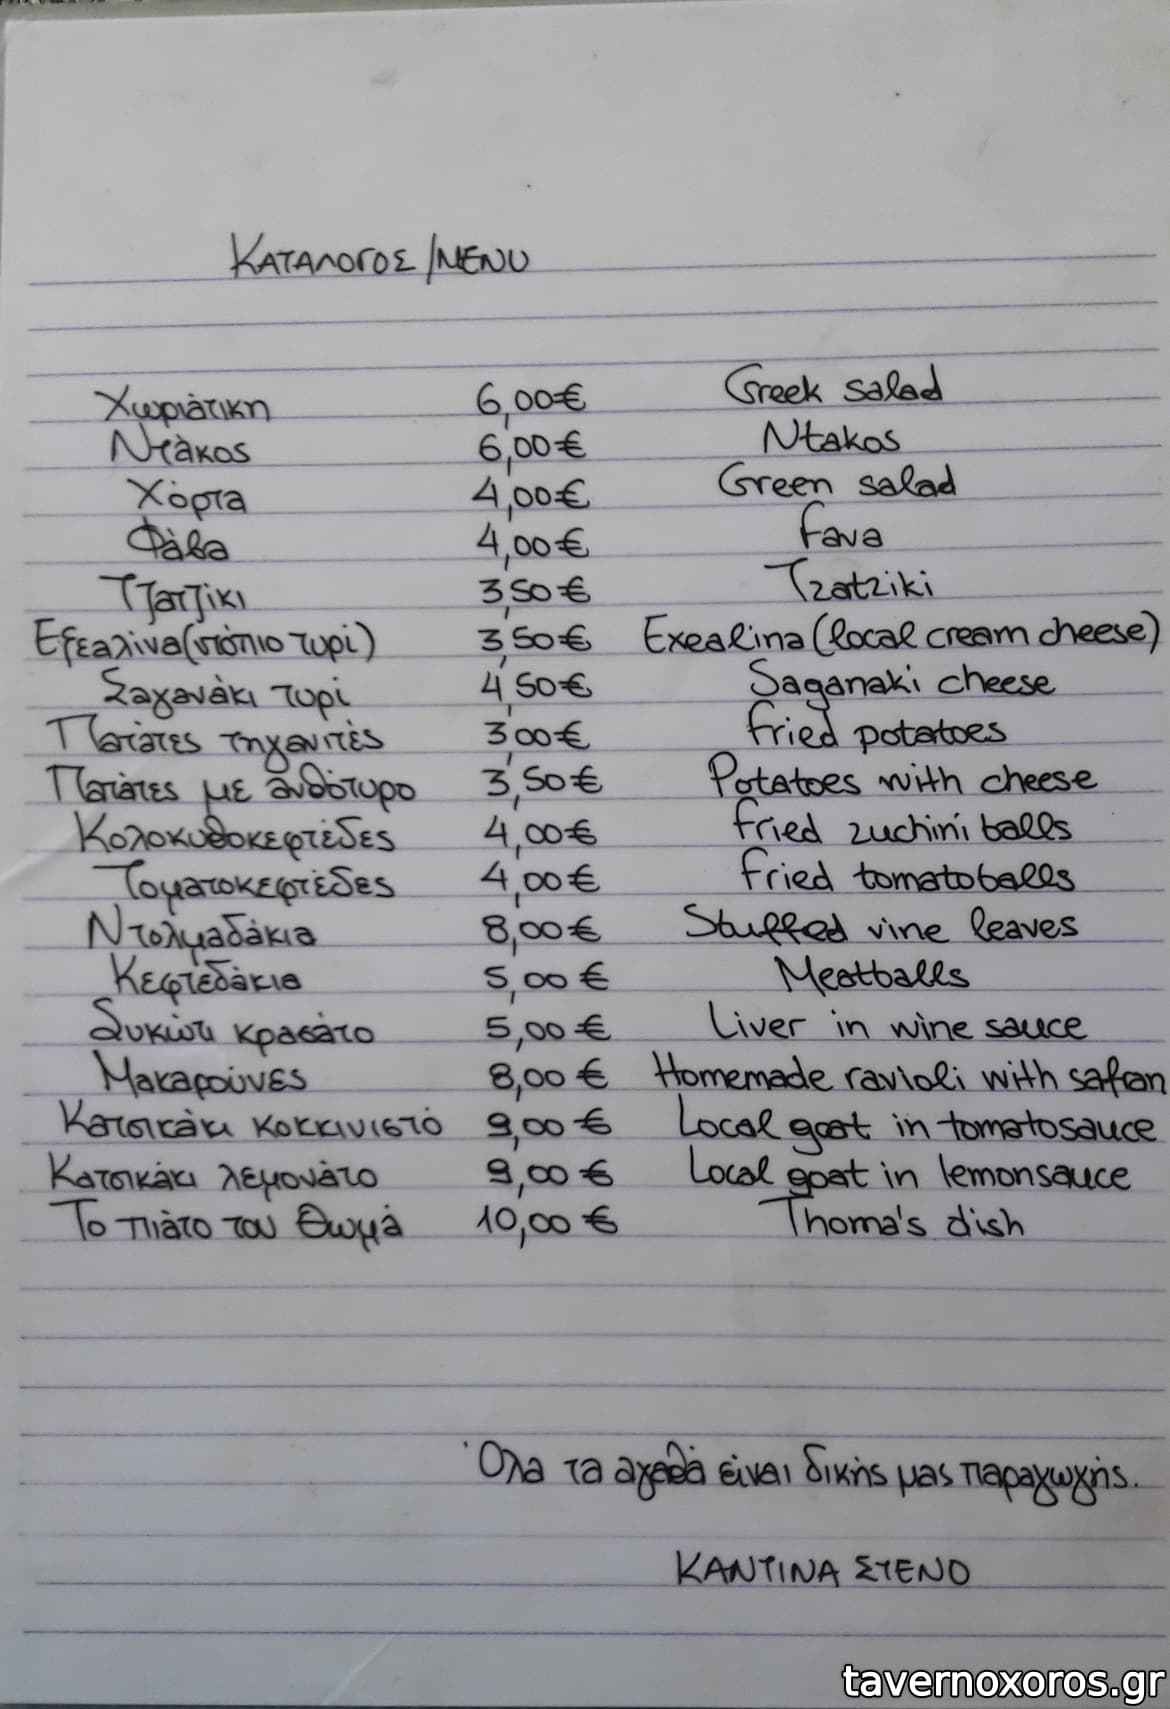 ΚΑΤΑΛΟΓΟΣ/MENU
Χωριάτικη 6,00€ Greek salad
Ντάκος 6,00€ Ntakos
Χόρτα 4,00€ Green salad
Φάβα 4,00€ Fava
Τζατζίκι 3,50€ Tzatziki
Εξεαλίνα(ντόπιο τυρί) 3,50€ Exealina(local cream cheese)
Σαγανάκι τυρί 4,50€ Saganaki cheese
Πατάτες τηγανιτές 3,00€ Fried potatoes
Πατάτες με ανθότυρο 3,50€ Potatoes with cheese
Κολοκυθοκεφτέδες 4,00€ Fried zuchini balls
Τοματοκεφτέδες 4,00€ Fried tomatoballs
Ντολμαδάκια 8,00€ Stuffed vine leaves
Κεφτεδάκια 5,00€ Meatballs
Συκώτι κρασάτο 5,00€ Liver in wine sauce
Μακαρούνες 8,00€ Homemade ravioli with safran
Κατσικάκι κοκκινιστό 9,00€ Local goat in tomatosauce
Κατσικάκι λεμονάτο 9,00€ Local goat in lemonsauce
Το πιάτο του Θωμά 10,00€ Thoma's dish
Όλα τα αγαθά είναι δικής μας παραγωγής.
ΚΑΝΤΙΝΑ ΣΤΕΝΟ
tavernoxoros.gr